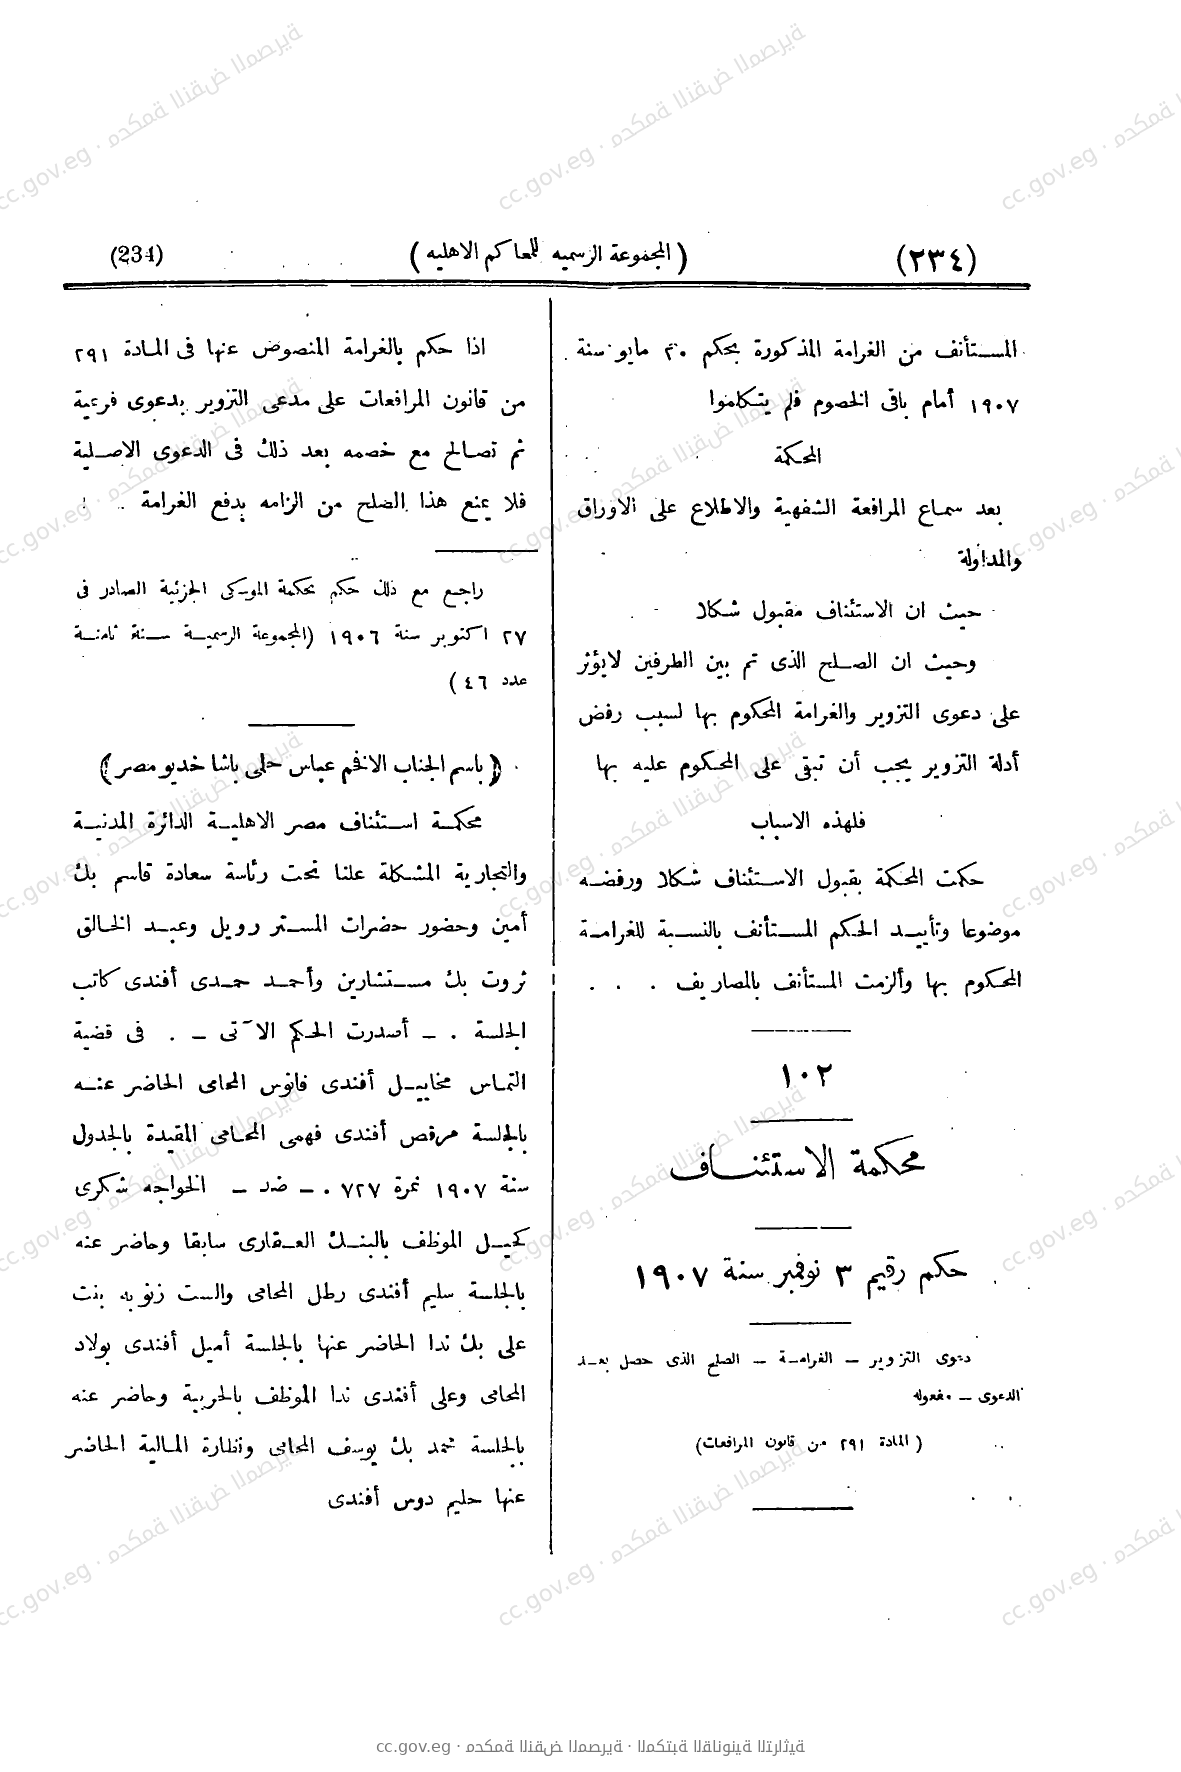 (٢٣٤) (المجموعة الرسميه للمحاكم الاهليه) (234)
المستأنف من الغرامة المذكورة بحكم ٣٠ مايو سنة
١٩٠٧ أمام باقى الخصوم فلم يتكلموا
المحكمة
بعد سماع المرافعة الشفهية والاطلاع على الاوراق
والمداولة
حيث ان الاستئناف مقبول شكلا
وحيث ان الصلح الذى تم بين الطرفين لايؤثر
على دعوى التزوير والغرامة المحكوم بها لسبب رفض
أدلة التزوير يجب أن تبقى على المحكوم عليه بها
فلهذه الاسباب
حكمت المحكمة بقبول الاستئناف شكلا ورفضه
موضوعا وتأييد الحكم المستأنف بالنسبة للغرامة
المحكوم بها وألزمت المستأنف بالمصاريف . . .
١٠٢
محكمة الاستئناف
حكم رقيم ٣ نوفمبر سنة ١٩٠٧
دعوى التزوير – الغرامة – الصلح الذى حصل بعد
الدعوى – مفعوله
(المادة ٢٩١ من قانون المرافعات)
اذا حكم بالغرامة المنصوص عنها فى المادة ٢٩١
من قانون المرافعات على مدعى التزوير بدعوى فرعية
ثم تصالح مع خصمه بعد ذلك فى الدعوى الاصلية
فلا يمنع هذا الصلح من الزامه بدفع الغرامة
راجع مع ذلك حكم محكمة الموسكى الجزئية الصادر فى
٢٧ اكتوبر سنة ١٩٠٦ (المجموعة الرسمية سنة ثامنة
عدد ٤٦)
(باسم الجناب الافخم عباس حلمى باشا خديو مصر)
محكمة استئناف مصر الاهلية الدائرة المدنية
والتجارية المشكلة علنا تحت رئاسة سعادة قاسم بك
أمين وحضور حضرات المستر رويل وعبد الخالق
ثروت بك مستشارين وأحمد حمدى أفندى كاتب
الجلسة . – أصدرت الحكم الآتى – . فى قضية
التماس مخاييل أفندى فانوس المحامى الحاضر عنه
بالجلسة مرقص أفندى فهمى المحامى المقيدة بالجدول
سنة ١٩٠٧ نمرة ٧٢٧ . – ضد – الخواجه شكرى
كحيل الموظف بالبنك العقارى سابقا وحاضر عنه
بالجلسة سليم أفندى رطل المحامى والست زنوبه بنت
على بك ندا الحاضر عنها بالجلسة أميل أفندى بولاد
المحامى وعلى أفندى ندا الموظف بالحربية وحاضر عنه
بالجلسة محمد بك يوسف المحامى ونظارة المالية الحاضر
عنها حليم دوس أفندى
cc.gov.eg · محكمة النقض المصرية · المكتبة القانونية التراثية